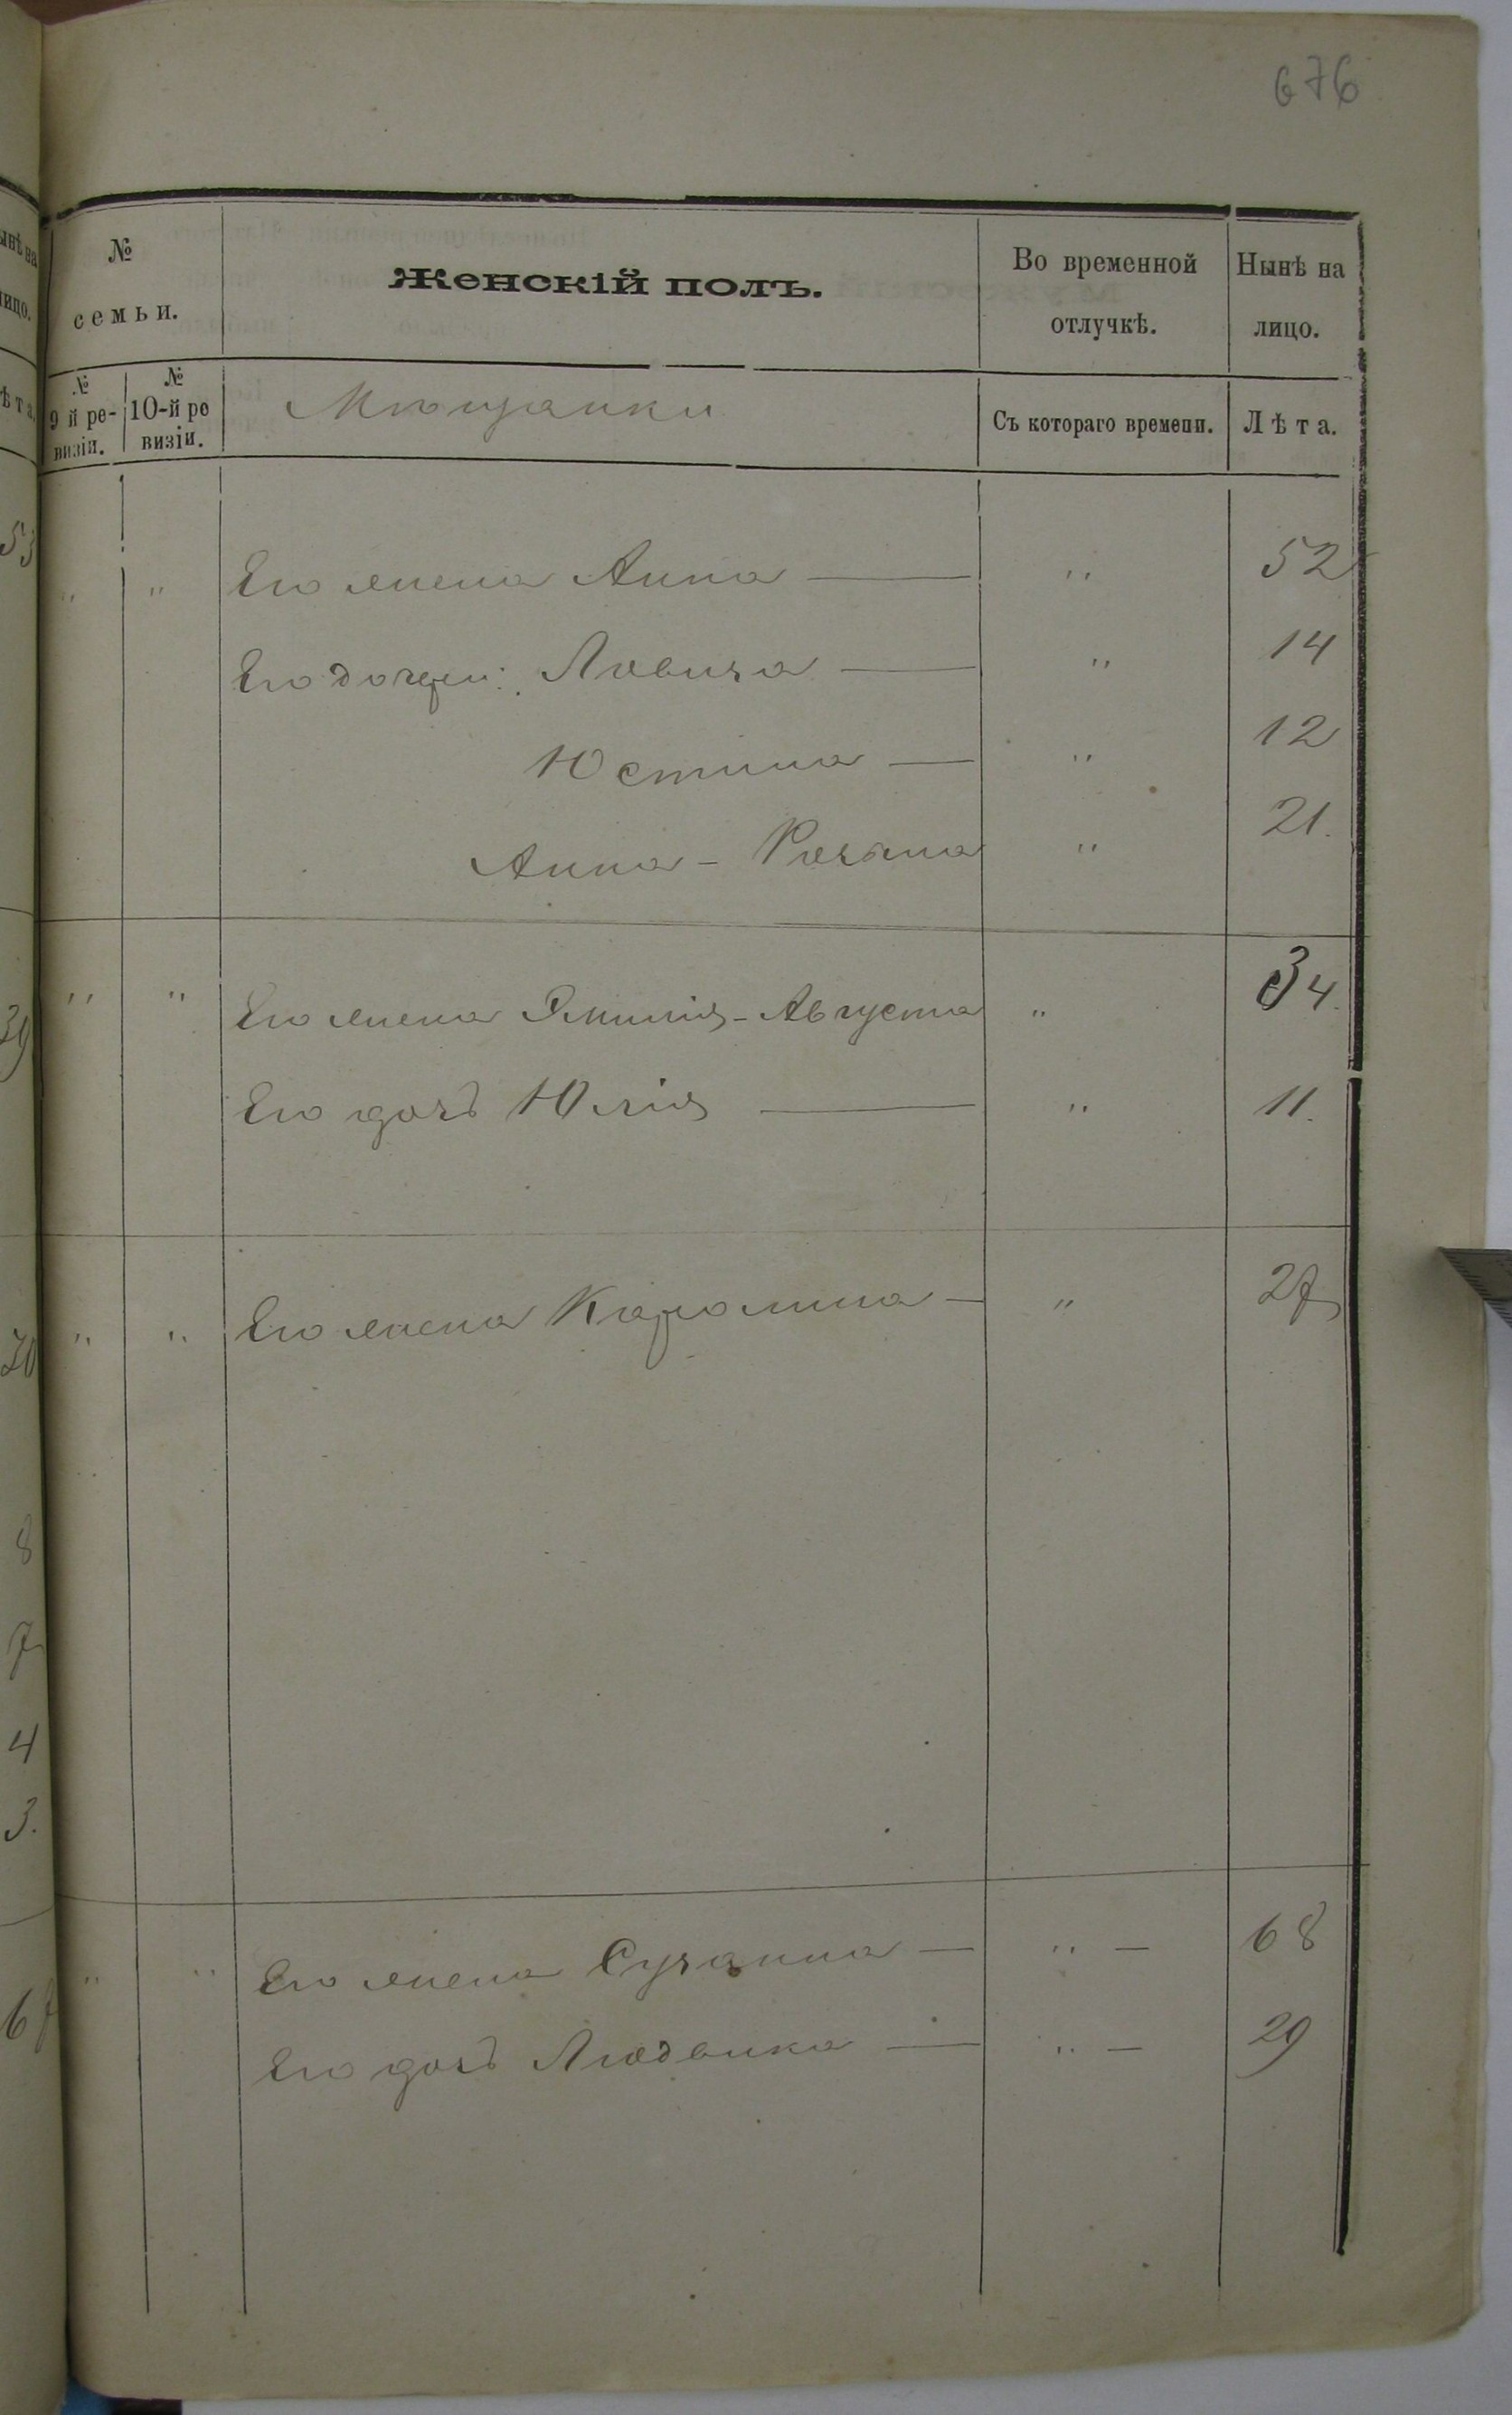 676
№ семьи.
Женскій полъ.
Во временной отлучкѣ.
Нынѣ на лицо.
№ 9 й ре-визіи.
№ 10-й ре визіи.
Мѣщанки
Съ котораго времени.
Лѣта.
53
" " Его жена Анна — " 52
Его дочери: Ловиза — " 14
Юстина — " 12
Анна - Розина " 21.
39
" " Его жена Эмилія - Августа " 34.
Его дочь Юлія — " 11.
30
" " Его жена Каролина — " 27
8
7
4
3.
67
" " Его жена Сузанна — " — 68
Его дочь Людвика — " — 29